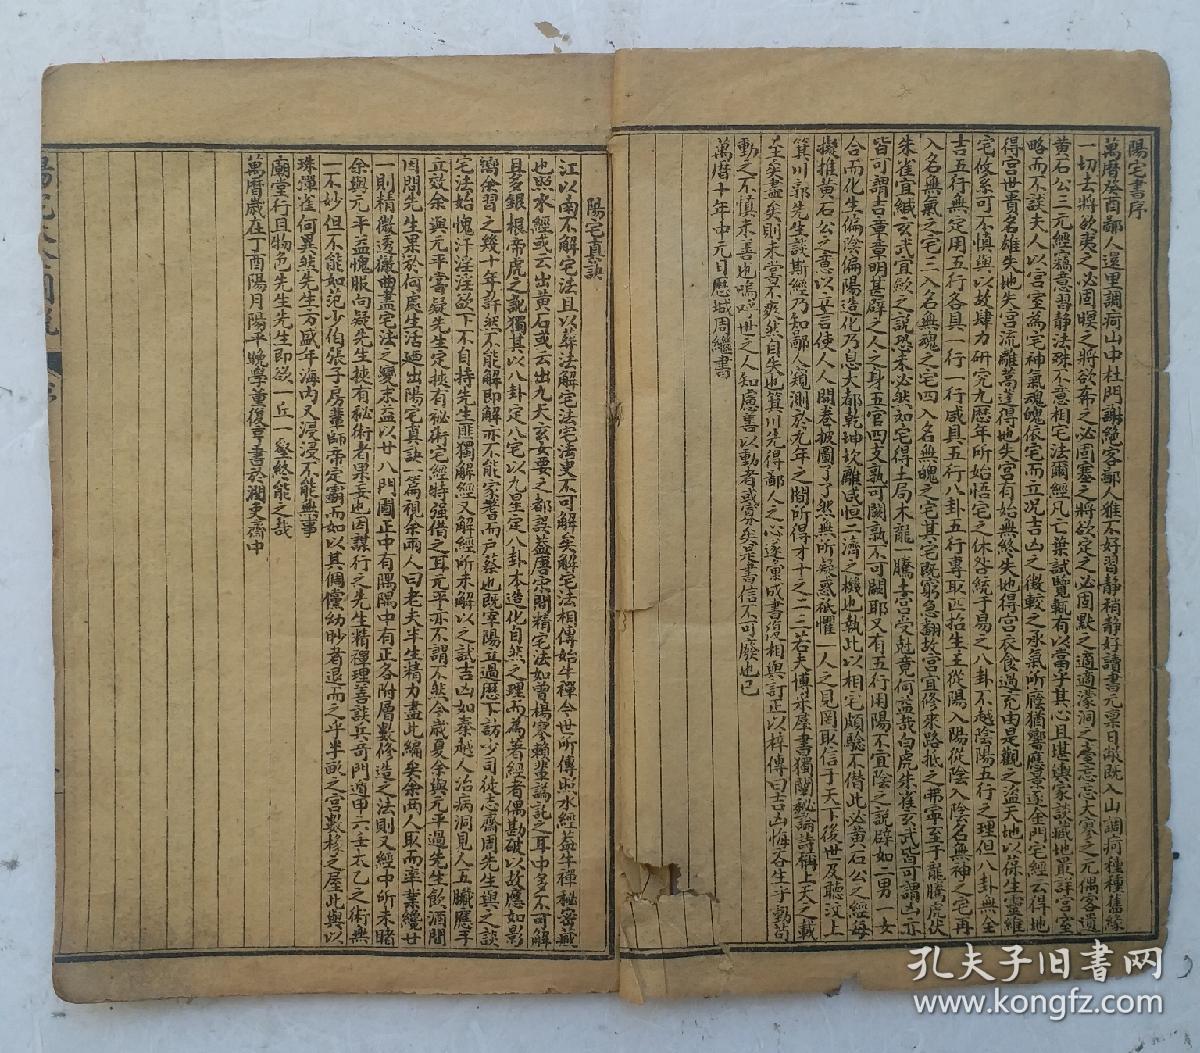 陽宅書序
萬曆癸酉鄙人還里調疴山中杜門謝絕客鄙人雅不好習靜稍靜好讀書元稟日敝既入山調疴種種舊緣
一切去將欲夷之必固暌之將欲希之必固塞之將欲定之必固點之適適濛洞之臺忘忘大寥之元偶客遺
黃石公三元經寤意習靜法殊不意相宅法爾經凡亡葉試覽輒有以當乎其心且堪輿家談藏地最詳宮室
略而不談夫人以宮室為宅神氣魂魄依宅而立況吉凶之徵較之承氣所蔭猶響應景遂金門宅經云得地
得宮世貴名雄失地失宮流離蒿達得地失宮有始無終失地得宮衣食過充由是觀之盜天地以葆生靈維
宅修系可不慎與以故肆力研究九歷年所始悟宅之休咎統于易之八卦不越陰陽五行之理但八卦無全
吉五行無定用五行各具一行一行咸具五行八卦五行專取匹招生王從陽入陽從陰入陰名無神之宅再
入名無氣之宅三入名無魂之宅四入名無魄之宅其宅既窮急翻故宮宜修來路抵之弗寧至于龍騰虎伏
朱雀宜緘玄武宜歛之說恐未必然如宅得土局木龍一騰土宮受尅竟何益哉白虎朱雀玄武皆可謂凶亦
皆可謂吉章章明甚辟之人之身五官四支孰可闕孰不可闕耶又有五行用陽不宜陰之說辟如二男一女
合而化生偏陰偏陽造化乃息大都乾坤坎離咸恒二濟之機也執此以相宅頗驗不僭此必黃石公之經每
擬推黃石公之意以立言使人人開卷披圖了了然無所疑惑祇懼一人之見罔取信于天下後世及聽汶上
箕川郭先生談斯經乃知鄙人窺測於尤年之間所得才十之二三若夫博采屋書獨闡秘論詩稱上天之載
至矣盡矣則未嘗不爽然自失也箕川先得鄙人之心遂彙成書復相與訂正以梓傳曰吉凶悔吝生乎動苟
動之不慎未善也嗚呼世之人知慮善以動者或寡矣是書信不可廢也已
萬曆十年中元日歷城周繼書
陽宅真訣
江以南不解宅法且以葬法解宅法宅法更不可解矣解宅法相傳始牛禪今世所傳照水經益牛禪秘密藏
也照水經或云出黃石或云出九天玄女要之都誤益唐宋間精宅法如曾楊寥賴輩論說之耳中多不可解
且多銀根帝虎之訛獨其以八卦定八宅以九星定八卦本造化自然之理而為著經者偶勘破以故應如影
嚮余習之幾十年許然不能解即解亦不能家著而戶蔡也既宰陽立過歷下訪少司徒志齋周先生與之談
宅法始愧汗淫淫欲下不自持先生匪獨解經又解經所未解以之試吉凶如秦越人治病洞見人五臟應手
立效余與元平嘗疑先生定挾有秘術宅經特強借之耳元平亦不謂不然今歲夏余與元平過先生飲酒間
因問先生累於何處生活廼出陽宅真訣一篇視余兩人曰老夫半生精力盡此編矣余兩人取而卒業纔廿
一則精微透徹曲盡宅法之變末益以廿八門圖正中有隅隅中有正各附層數修造之法則又經中所未睹
余與元平益愧服向疑先生挾有秘術者果妄也因謀行之先生精禪理善談兵奇門遁甲六壬太乙之術無
一不妙但不能如范少伯張子房輩師帝定霸而如以其倜儻幼眇者退而之乎半畝之宮數椽之屋此與以
珠彈雀何異然先生方盛年海內又浸浸不能無事
廟堂行且物色先生先生即欲一丘一壑終能之哉
萬曆歲在丁酉陽月陽平晚學董復亨書於潤吏齋中
孔夫子旧书网
www.kongfz.com